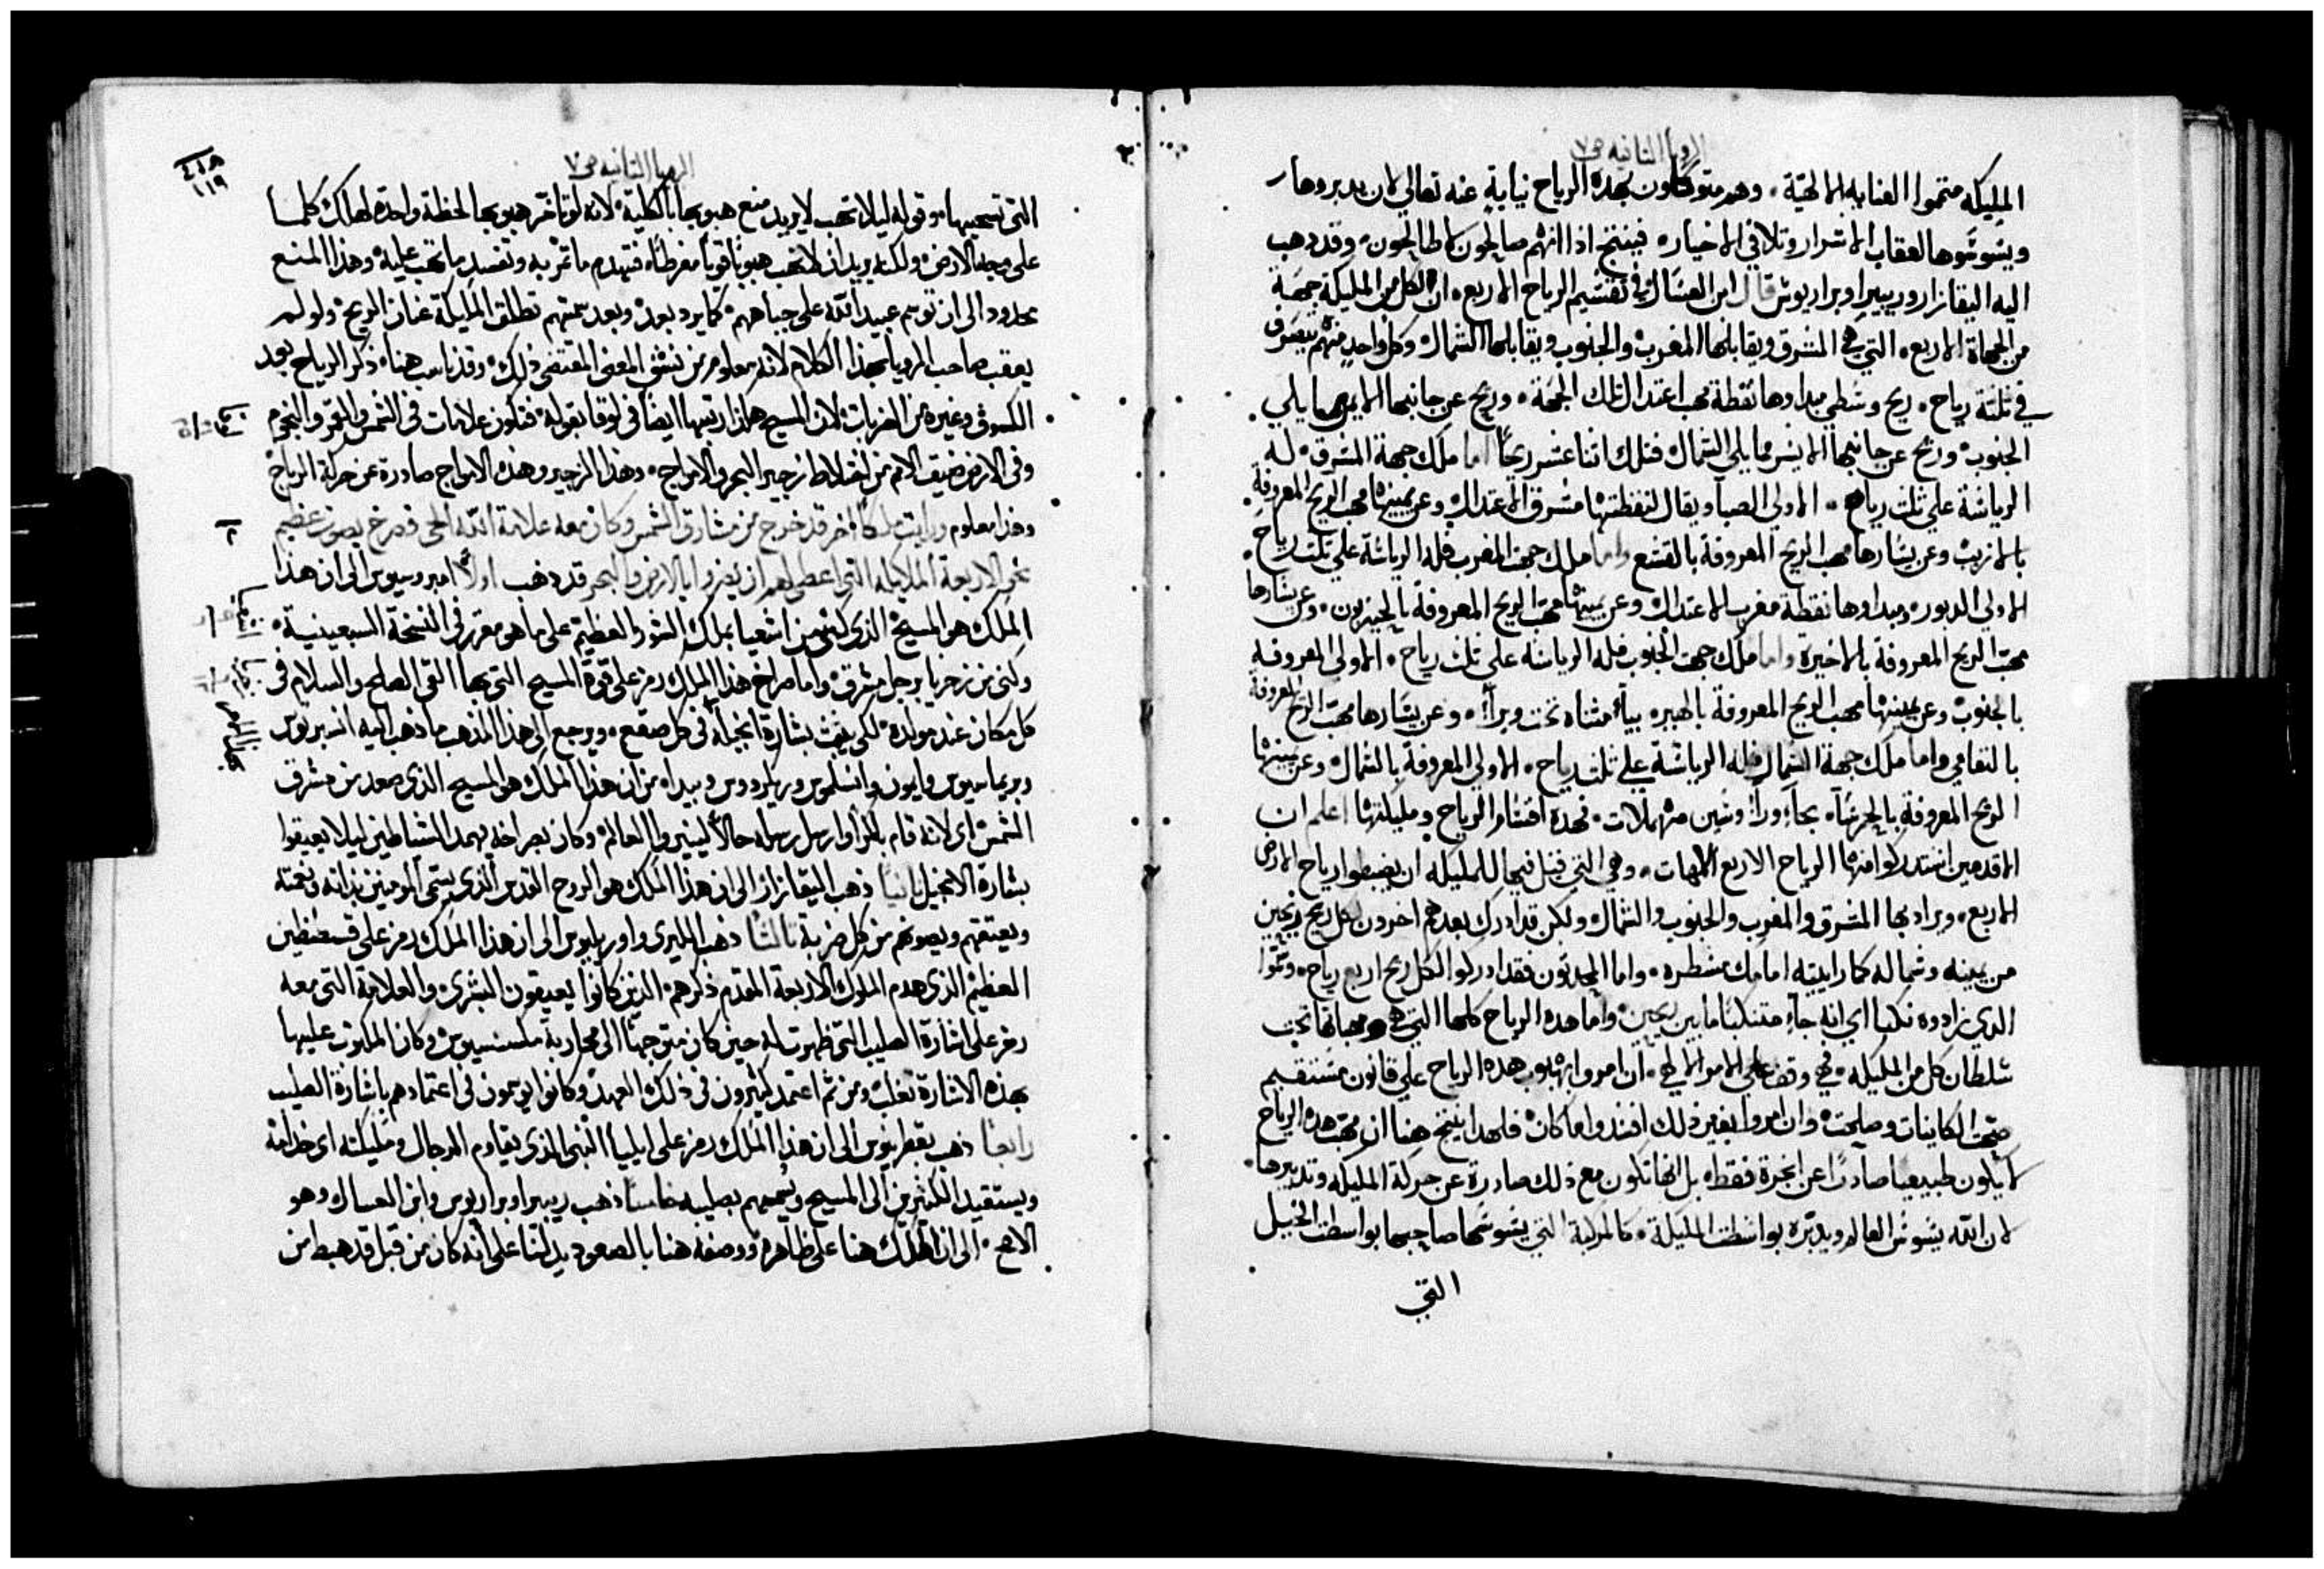 الرويا الثانيه ص٧
المليكه متمموا العنايه الالهيّة ٠ وهم متوكلون بهده الرياح نيابةٍ عنه تعالي لان يدبروها
ويشوشوها لعقاب الاشرار وتلافي الاخيار ٥ فينتج اذا انهم صالحون لا طالحون ٥ وقد دهب
اليه اليقازار وريبيرا وبراريوش قال ابن العسال في تقسيم الرياح الاربع ٥ ان لكل من المليكة جهة
من الجهاة الاربع ٥ التي هي المشرق ويقابلها المغرب والجنوب ويقابلها الشمال وكل واحدٍ منهم يتصرف
في تلتة رياح ٠ ريح وسطي مبداوها نقطة مهب اعتدال تلك الجهة ٠ وريح عن جانبها الايمن مما يلي
الجنوب ٥ وريح عن جانبها الايسر مما يلي الشمال فتلك اتنا عشر ريحًا اما ملك جهة المشرق ٥ له
الرياسة علي تلت رياح ٠ الاولي الصبا ويقال لنقطتها مشرق الاعتدال وعن يمينها مهب الريح المعروفة
بالازيب وعن يسارها مهب الريح المعروفة بالقشع واما ملك جهت المغرب فله الرياسة علي تلت رياح ٠
الاولي الدبور ٥ ومبداوها نقطة مغرب الاعتدال وعن يمينها مهب الريح المعروفة بالحيزبون ٠ وعن يسارها
مهب الريح المعروفة بالاخيرة واما ملك جهت الجنوب فله الرياسه علي تلت رياح ٠ الاولي المعروفه
بالجنوب وعن يمينها مهب الريح المعروفة بالهيره بياءٍ متناه تحت وبراءٍ ٠ وعن يسارها مهب الريح المعروفة
بالنعامي واما ملك جهة الشمال فله الرياسة علي تلت رياح ٠ الاولي المعروفة بالشمال وعن يمينها
الريح المعروفة بالجرساء ٠ وسين مهملات ٠ فهده اقسام الرياح ومليكتها اعلم ان
الاقدمين استدركوا منها الرياح الاربع الامهات ٠ وهي التي قيل فيها للمليكه ان يضبطوا رياح الارض
الاربع ٥ ويراد بها المشرق والمغرب والجنوب والشمال ولكن قد ادرك بعدهم اخرون لكل ريح ريحين
من يمينه وشماله كما راييته امامك مسطره ٥ واما المحدتون فقد ادركوا لكل ريح اربع رياح ٥ وسموا
الدي زادوه نكبا اي انه جاء متنكبًا ما بين ريحين ٥ واما هده الرياح كلها التي هي ومهباتها تحت
سلطان كل من المليكه ٥ الامر الالهي ٠ ان امروا بهبوب هده الرياح علي قانون مستقيم
صحت الكاينات وصلحت ٥ وان امروا بغير ذلك افسدوا ما كان ٥ فلهدا ينتج هنا ان مهب هده الرياح
لا يكون طبيعيا صادرًا عن ابخرة فقط ٥ بل انها تكون مع ذلك صادرة عن حركة المليكه وتدبيرها ٠
لان الله يسوس العالم ويدبره بواسطت المليكة ٠ كالمركبة التي يسوسها صاحبها بواسطت الخيل
التي
الرويا الثانيه ص٧
١١٩
التي تسحبها ٥ وقوله ليلا تهب لا يريد منع هبوبها بالكلية ٥ لانه لو تاخر هبوبها لحظة واحدة لهلك كلما
على وجه الارض ٥ ولكنه يريد ان لا تهب هبوبًا قويًا مفرطًا ٥ فتهدم ما تمر به وتفسد ما تهب عليه ٥ وهذا المنع
محدود الى ان توسم عبيد الله على جباههم ٥ كما يرد بعد ٥ وبعد سمتهم تطلق المليكة عنان الريح ٥ ولو لم
يعقب صاحب الرويا بهذا الكلام لانه معلوم من نسق المعنى المقتضى ذلك ٥ وقد ناسب هنا ذكر الرياح بعد
الكسوف وغيره من الضربات لان المسيح هكذا رتبها ايضًا في لوقا بقوله ٥ فتكون علامات في الشمس والقمر والنجوم
وفي الارض ضيق الامم من اختلاط زجير البحر والامواج ٥ وهذا الزجير وهذه الامواج صادرة عن حركة الرياح
وهذا معلوم ورايت ملاكًا اخر قد خرج من مشارق الشمس وكان معه علامة الله الحي فصرخ بصوت عظيم
نحو الاربعة الملايكه التي اعطى لهم ان يضروا بالارض والبحر قد ذهب اولًا امبروسيوس الى ان هذا
الملك هو المسيح ٥ الذي كني من اشعيا بملك الشور العظيم على ما هو مقرر في النسخة السبعينية ٥
وكني من زخريا برجل مشرق ٥ واما صراخ هذا الملك رمز على قوة المسيح التي بها القى الصلح والسلام في
كل مكان عند مولده ٥ لكي يثبت بشارة انجيله في كل صقع ٥ ويرجع الى هذا المذهب ما ذهب اليه انسبرتوس
وبريماسيوس وايمون وانسلموس وريكردوس وبيدا ٥ من ان هذا الملك هو المسيح الذي صعد من مشرق
الشمس اى لانه قام باكرًا وارسل رسله حالًا لينيروا العالم ٥ وكان بصراخه يهدد الشياطين ليلا يعيقوا
بشارة الانجيل ثانيًا ذهب اليقازار الى ان هذا الملك هو الروح القدس الذي يسمى المومنين بذاته ونعمته
ويعتقهم ويصونهم من كل ضربة ثالثًا ذهب الليرى واوريليوس الى ان هذا الملك رمز على قسطنطين
العظيم الذي هدم الملوك الاربعة المقدم ذكرهم ٥ الذين كانوا يعيقون البشرى ٥ والعلامة التي معه
رمز على اشارة الصليب التي ظهرت له حين كان متوجهًا الى محاربة مكسنسيوس ٥ وكان المكتوب عليها
بهذه الاشارة تغلب ٥ ومن ثم اعتمد كثيرون في ذلك العهد وكانوا يوسمون في اعتمادهم باشارة الصليب
رابعًا ذهب بقطرينوس الى ان هذا الملك رمز على ايليا النبي الذي يقاوم الدجال ومليكته اى خدامه
ويستقيد الكثيرين الى المسيح ويسمهم بصليبه خامسًا ذهب ريبيرا وبراريوس وابن العسال وهو
الاصح ٥ الى ان الملك هنا على ظاهره ووصفه هنا بالصعود يدلنا على انه كان من قبل قد هبط من